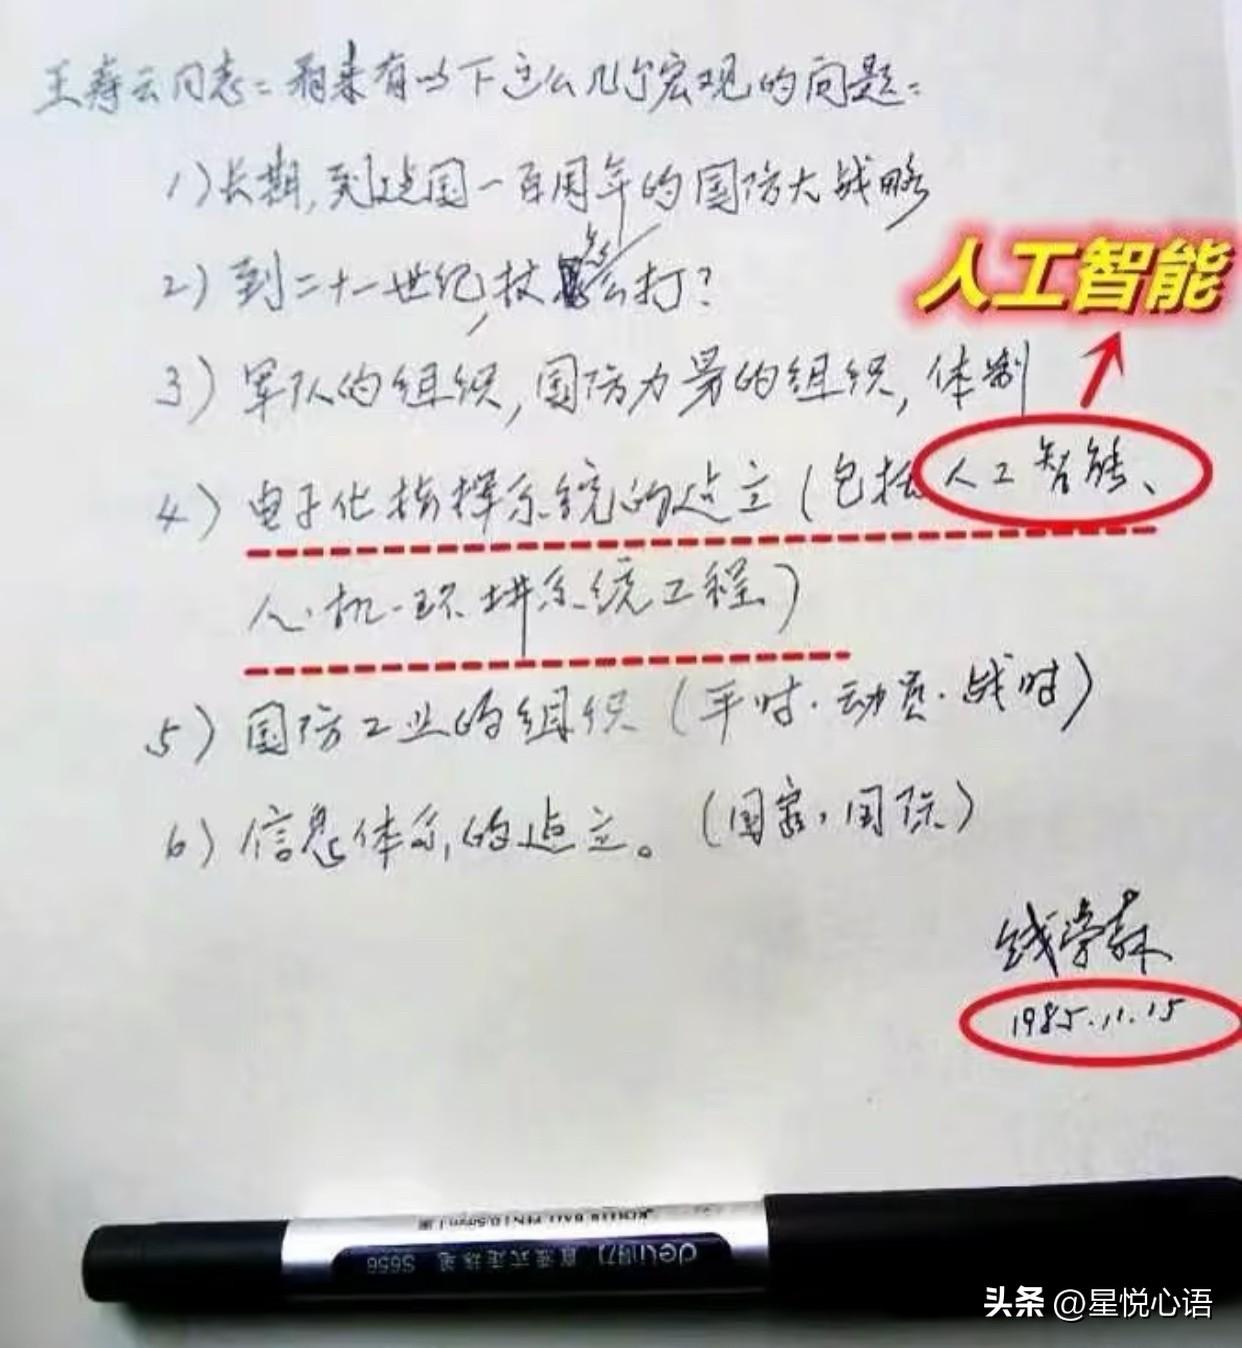 王寿云同志：看来有以下这么几个宏观的问题：
1）长期，到建国一百周年的国防大战略
2）到二十一世纪，仗怎么打？
人工智能
3）军队的组织，国防力量的组织，体制
4）电子化指挥系统的建立（包括人工智能、
人-机-环境系统工程）
5）国防工业的组织（平时·动员·战时）
6）信息体系的建立。（国家，国际）
钱学森
1985.11.15
ROLLER BALL PEN 0.5mm
deli 得力 直液式走珠笔 S656
头条 @星悦心语